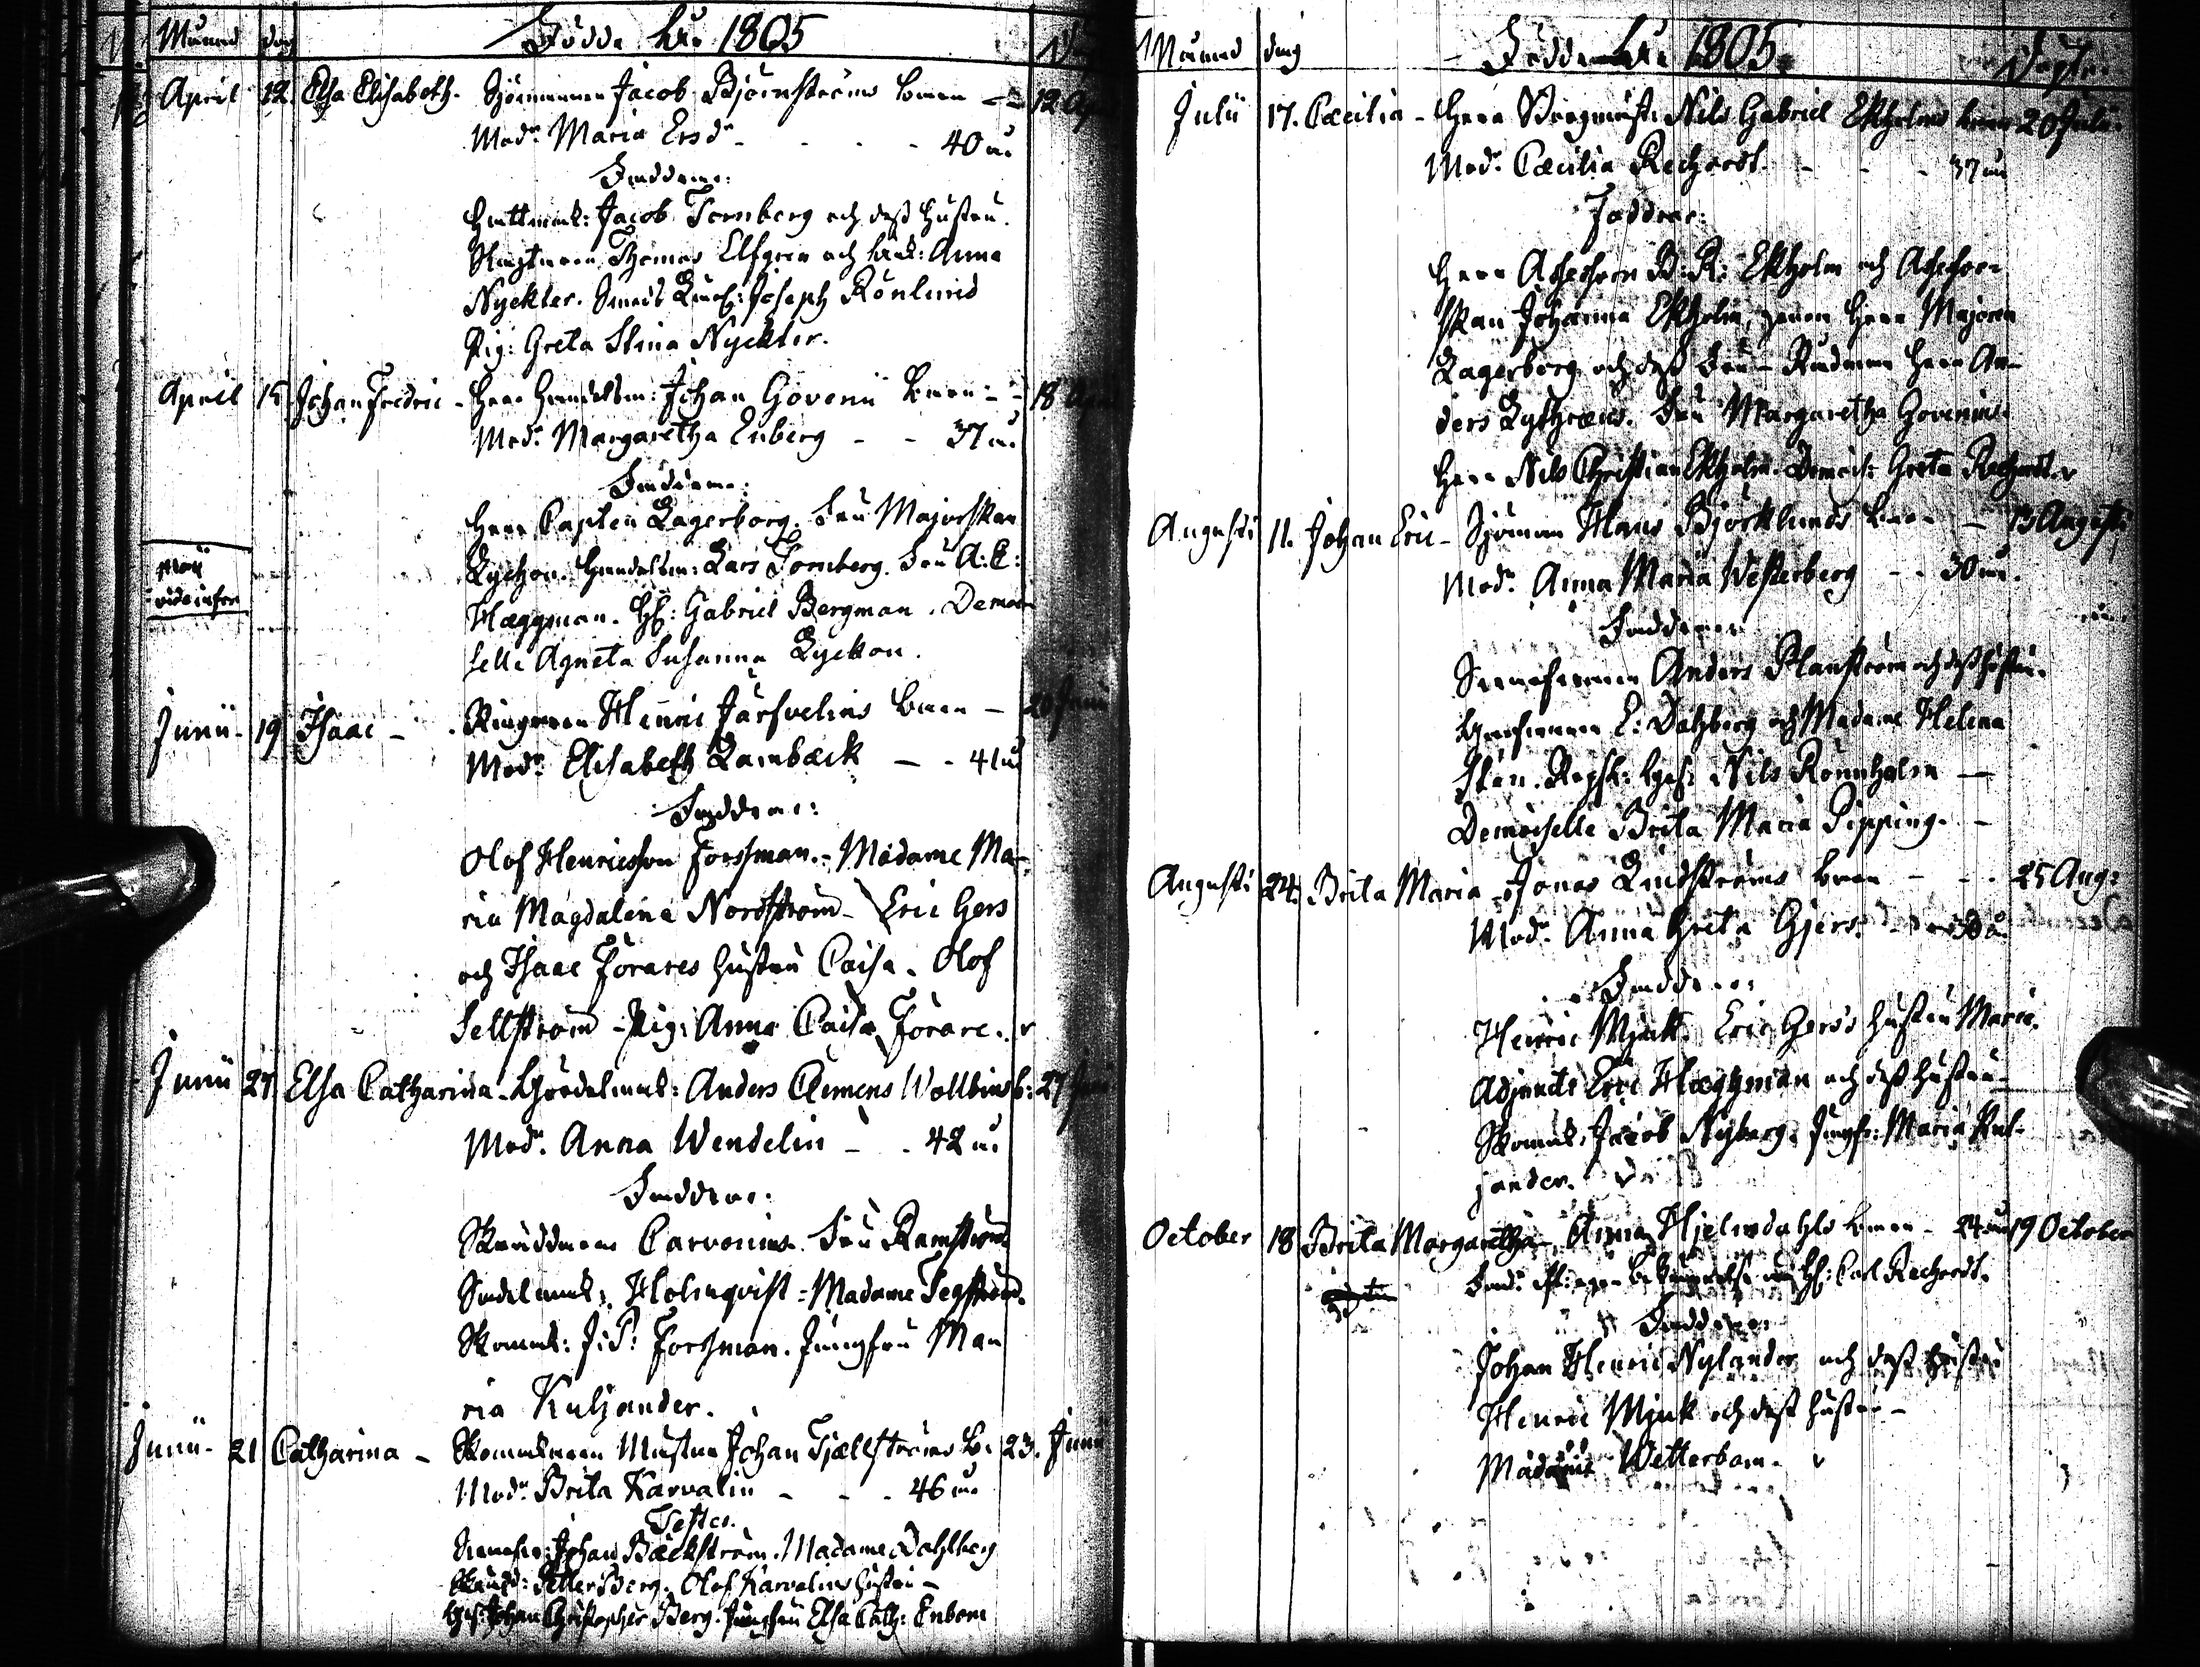 Månad dag Födde åhr 1805
April 12. Elsa Elisabeth. Sjömannen Jacob Björnströms barn 12 Ap
Modr. Maria Ersdr - - - 40 år
Faddrar:
Hattmak: Jacob Tornberg och dess hustru.
Thomas Elfgren och Anna
Nyckter. Smeds Joseph Rönlund
Pig: Greta Stina Nyckter.
April 15 Johan Fredric - Herr Handelsm: Johan Govenii barn - 18 Ap
Modr. Margaretha Enberg - - 37 år
Faddrar:
Herr Capten Lagerborg. Fru Majorskan
Lyckou. Handelsm: Lars Tornberg. Fru A: C:
Hæggman. Gabriel Bergman. Demoi
selle Agneta Susanna Lyckou.
Maij
vide infra
Junii - 19 Isaac - Ringaren Henric Järfvelins barn - 20 Junii
Modr. Elisabeth Lambæck - - 41 år
Faddrar:
Olof Henricsson Forssman. - Madame Ma-
ria Magdalena Nordström - Eric Gers
och Isaac Forares hustru Caisa. Olof
Sellström - Pig: Anna Caisa Forare.
Junii 27. Elsa Catharina - Anders Clemens Wallins b: 27 Junii
Modr. Anna Wendelin - - 42 år
Faddrar:
Skräddaren Carvonius. Fru Ramström
Sadelmak: Holmqvist = Madame Segström.
Skomak: J: P: Forssman. Jungfru Ma
ria Kuljander.
Junii - 21 Catharina - Skomakaren Mustar Johan Tjällströms b. 23. Junii
Modr. Brita Karvalin - - - 46 år
Testes.
Johan Bäckström. Madame Dahlberg
Petter Berg. Olof Karvalins hustru -
Johan Christopher Berg. Jungfru Elsa Cath: Enbom
Månad dag Födde åhr 1805. Döpte.
Julii 17. Cæcilia - Herr Nils Gabriel Ekholms barn 20 Julii.
Modr. Cæcilia Rechardt. - - - 37 år
Faddrar:
Herr Assessoren B: R: Ekholm och Assessor-
skan Johanna Ekholm, Herr Majoren
Lagerborg och dess Fru - Herr An-
ders Lythræus. Fru Margaretha Govenius.
Herr Nils Christian Ekholm. Demois: Greta Rechardt.
Augusti 11. Johan Eric - Sjöman Hans Björklunds barn - 13 Augusti
Modr. Anna Maria Westerberg - - 30 år.
Faddrar:
Anders Planström och dess hustru.
E: Dahlberg och Madame Helena
Nils Rönnholm -
Demoiselle Brita Maria Pipping. -
Augusti 24. Brita Maria - Jonas Lindströms barn - - - 25 Aug:
Modr. Anna Greta Gjers.
Faddrar:
Henric Mjuk. Eric Gers's hustru Maria.
Adjunct Eric Hæggman och dess hustru
Skomak: Jacob Nyberg. Jungfr: Maria Kul-
jander.
October 18 Brita Margaretha - Anna Hjelmdahls barn - 24 år 19 October
Fadr. Carl Rechardt.
Faddrar:
Johan Henric Nylander och dess hustru
Henric Mjuk och dess hustru -
Madame Wetterbom.